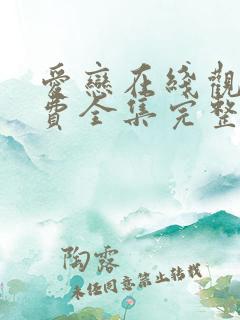 愛戀在綫觀
費全集完整
陶露
未經同意禁止轉載